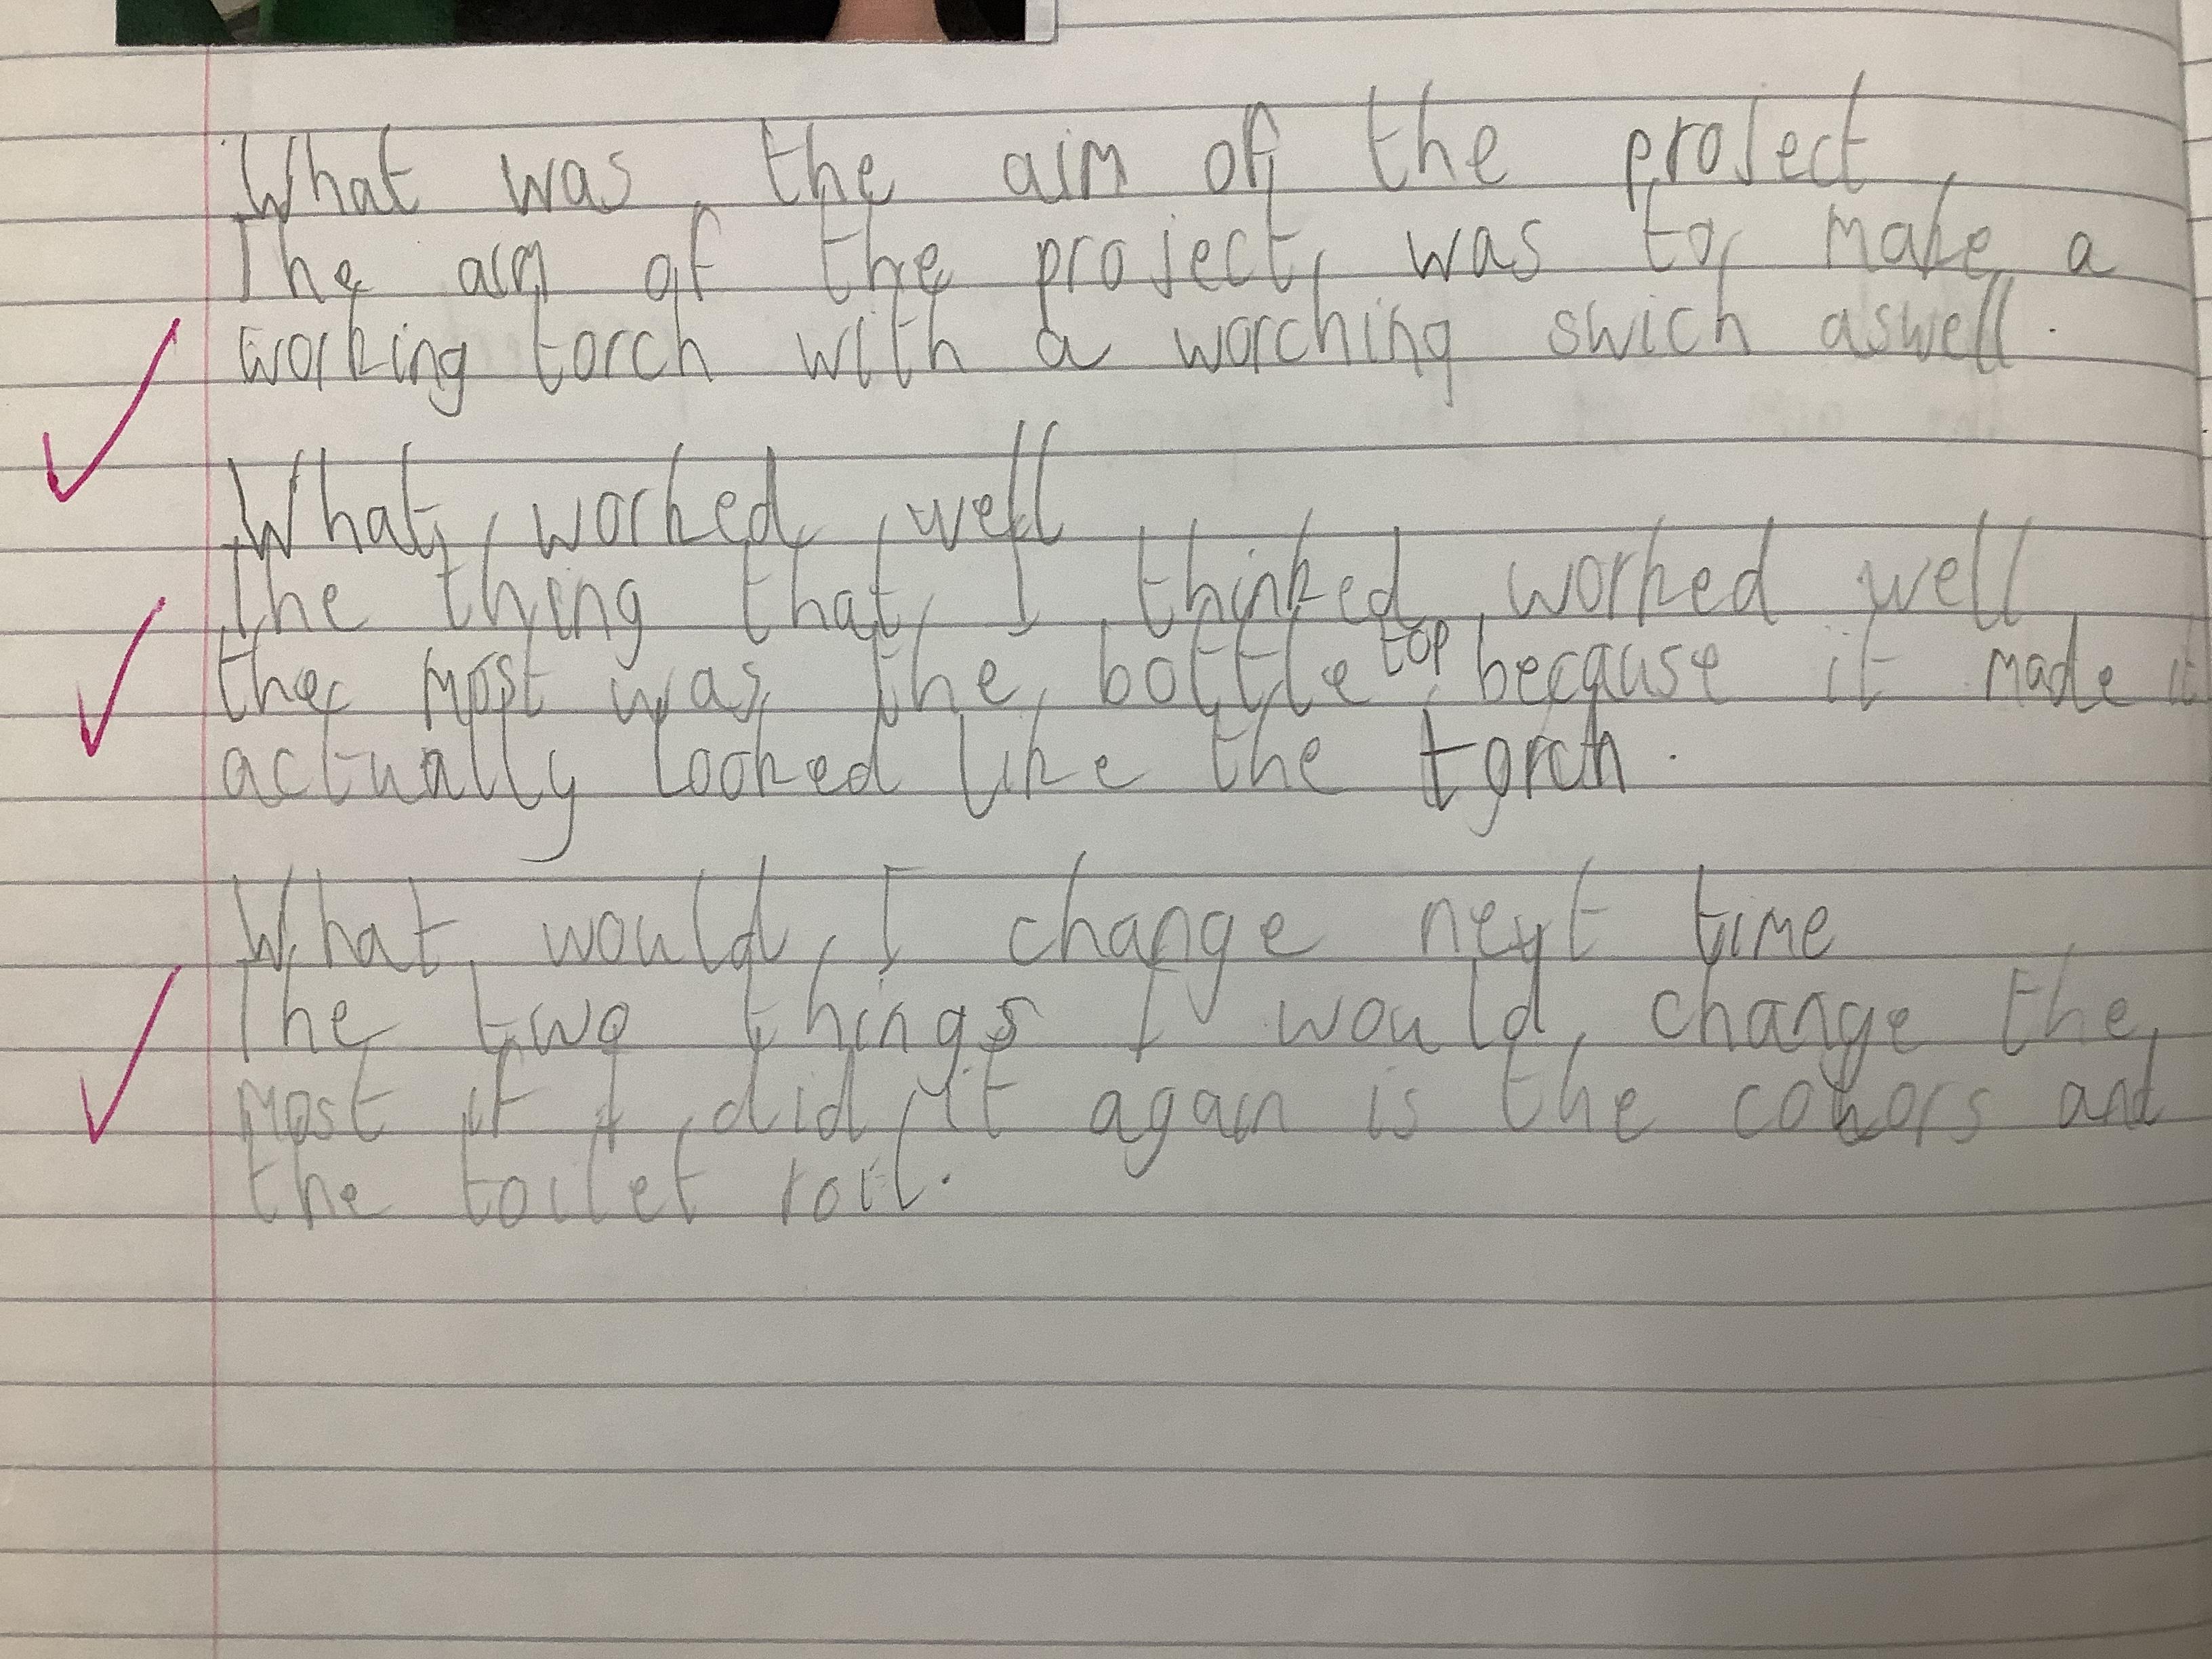 What was the aim of the project
The aim of the project was to make a
working torch with a worching swich aswell.
What worked well
The thing that I thinked worked well
the most was the bottle top because it made it
actually looked like the torch.
What would I change next time
The two things I would change the
most if I did it again is the colours and
the toilet roll.